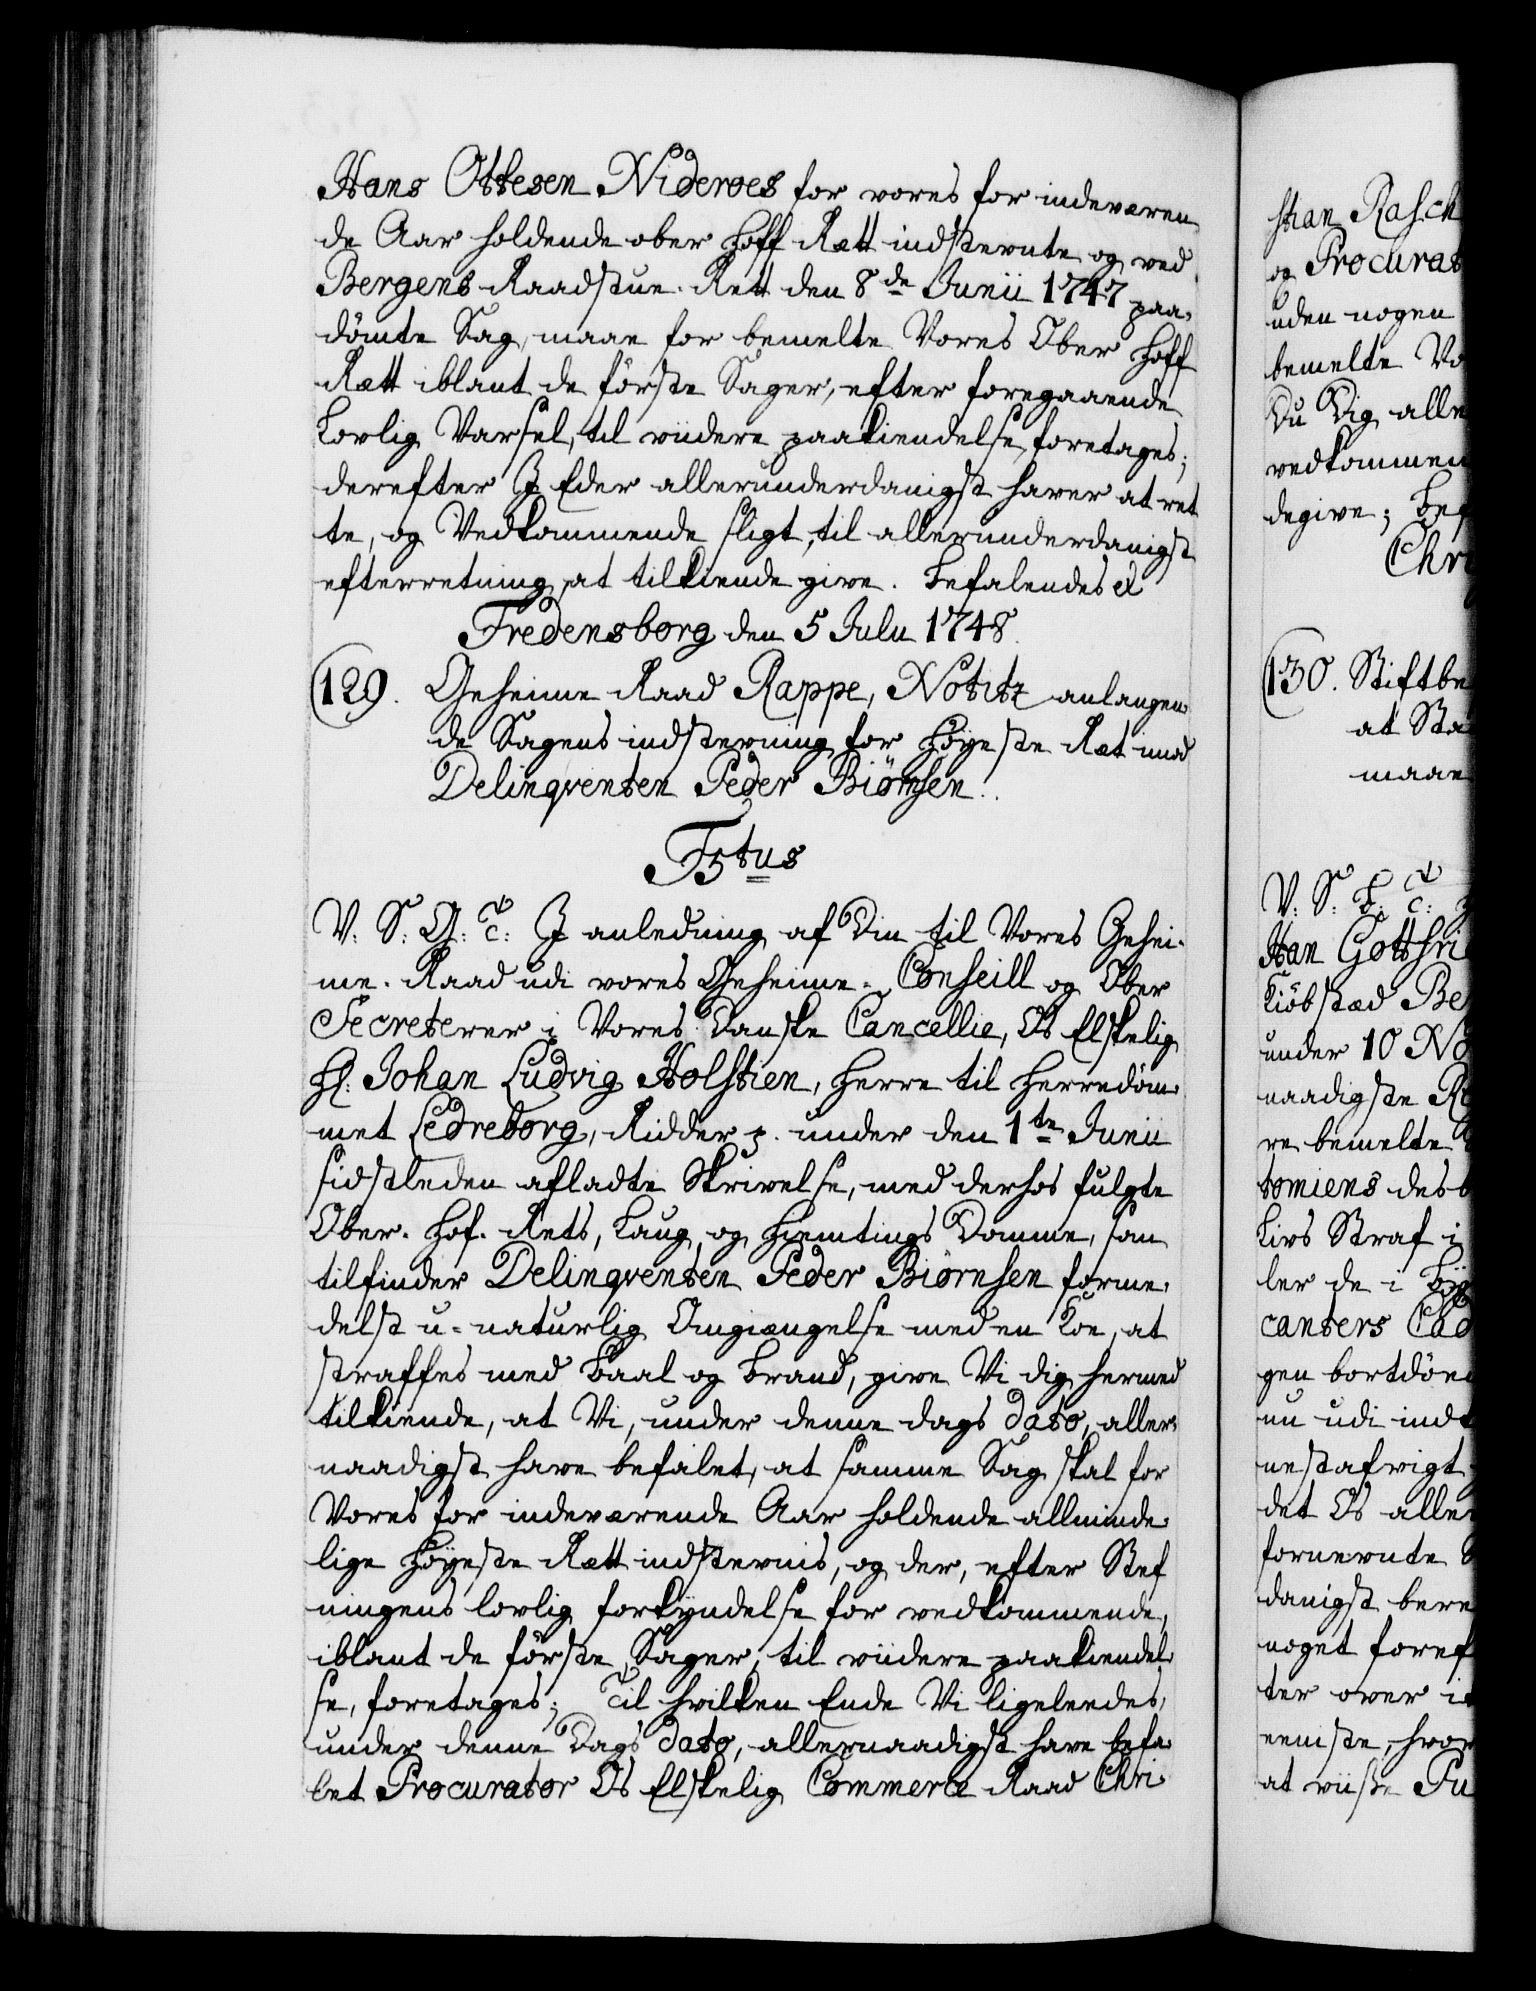 Hans Ottesen Nideroes for vores for indeværen
de Aar holdende ober Hoff Rætt indstevnte og ved
Bergens Raadstue-Rett den 8de Junii 1747 paa-
dömte Sag, maae for bemelte Vores Ober Hoff
Rætt iblant de förste Sager, efter foregaaende
Lovlig Varsel, til viidere paakiendelse foretages;
derefter I Eder allerunderdanigst haver at ret
te, og Vedkommende sligt, til allerunderdanigst
efterretning, at tilkiende give. Befalendes &
Fredensborg den 5 Julii 1748.
129. Geheime Raad Rappe, Notitz anlangen-
de Sagens indstevning for Höyeste Ræt imod
Delinqventen Peder Biörnsen.
F5tus
V: S: G: T: C: I anledning af Din til Vores Gehei-
me-Raad udi vores Geheime-Conseill og Ober
Secreterer i Vores Danske Cancellie, Os Elskelig
Hr: Johan Ludvig Holstien, Herre til Herredöm-
met Ledreborg, Ridder p. under den 1te Junii
sidstleden afladte Skrivelse, med derhos fulgte
Ober-Hof-Rets, Laug, og Hiemtings Domme, som
tilfinder Delinqventen Peder Biörnsen forme-
delst u-naturlig Omgiængelse med en Koe, at
straffes med Baal og Brand, give Vi dig hermed
tilkiende, at Vi, under denne dags dato, aller-
naadigst have befalet, at samme Sag skal for
Vores for indeværende Aar holdende allminde-
lige Höyeste Rætt indstevnis, og der, efter Stef
ningens lovlig forkyndelse for vedkommende,
iblant de förste Sager, til viidere paakiendel-
se, foretages; Til hvilken Ende Vi ligeleedes,
under denne Dags dato, allernaadigst have befa-
let Procurator Os Elskelig Commerce Raad Chri-
stian Rasch
og Procurat
uden nogen
bemelte Vo
Du Dig alle
vedkommen
degive; Bef
Chri
130. Stiftbe
at Sta
maae
V: S: B: T: C:
Han Gottfri
Kiöbstæd Be
under 10 No
naadigste Re
re bemelte
tomiens desb
Livs Straf i
ler de i
canters Cad
gen bortdöe
nu udi ind
nestafvigt
det Os alle
fornevnte S
danigst bere
noget foref
ter over i
eeniste, hvor
at viiste Pu